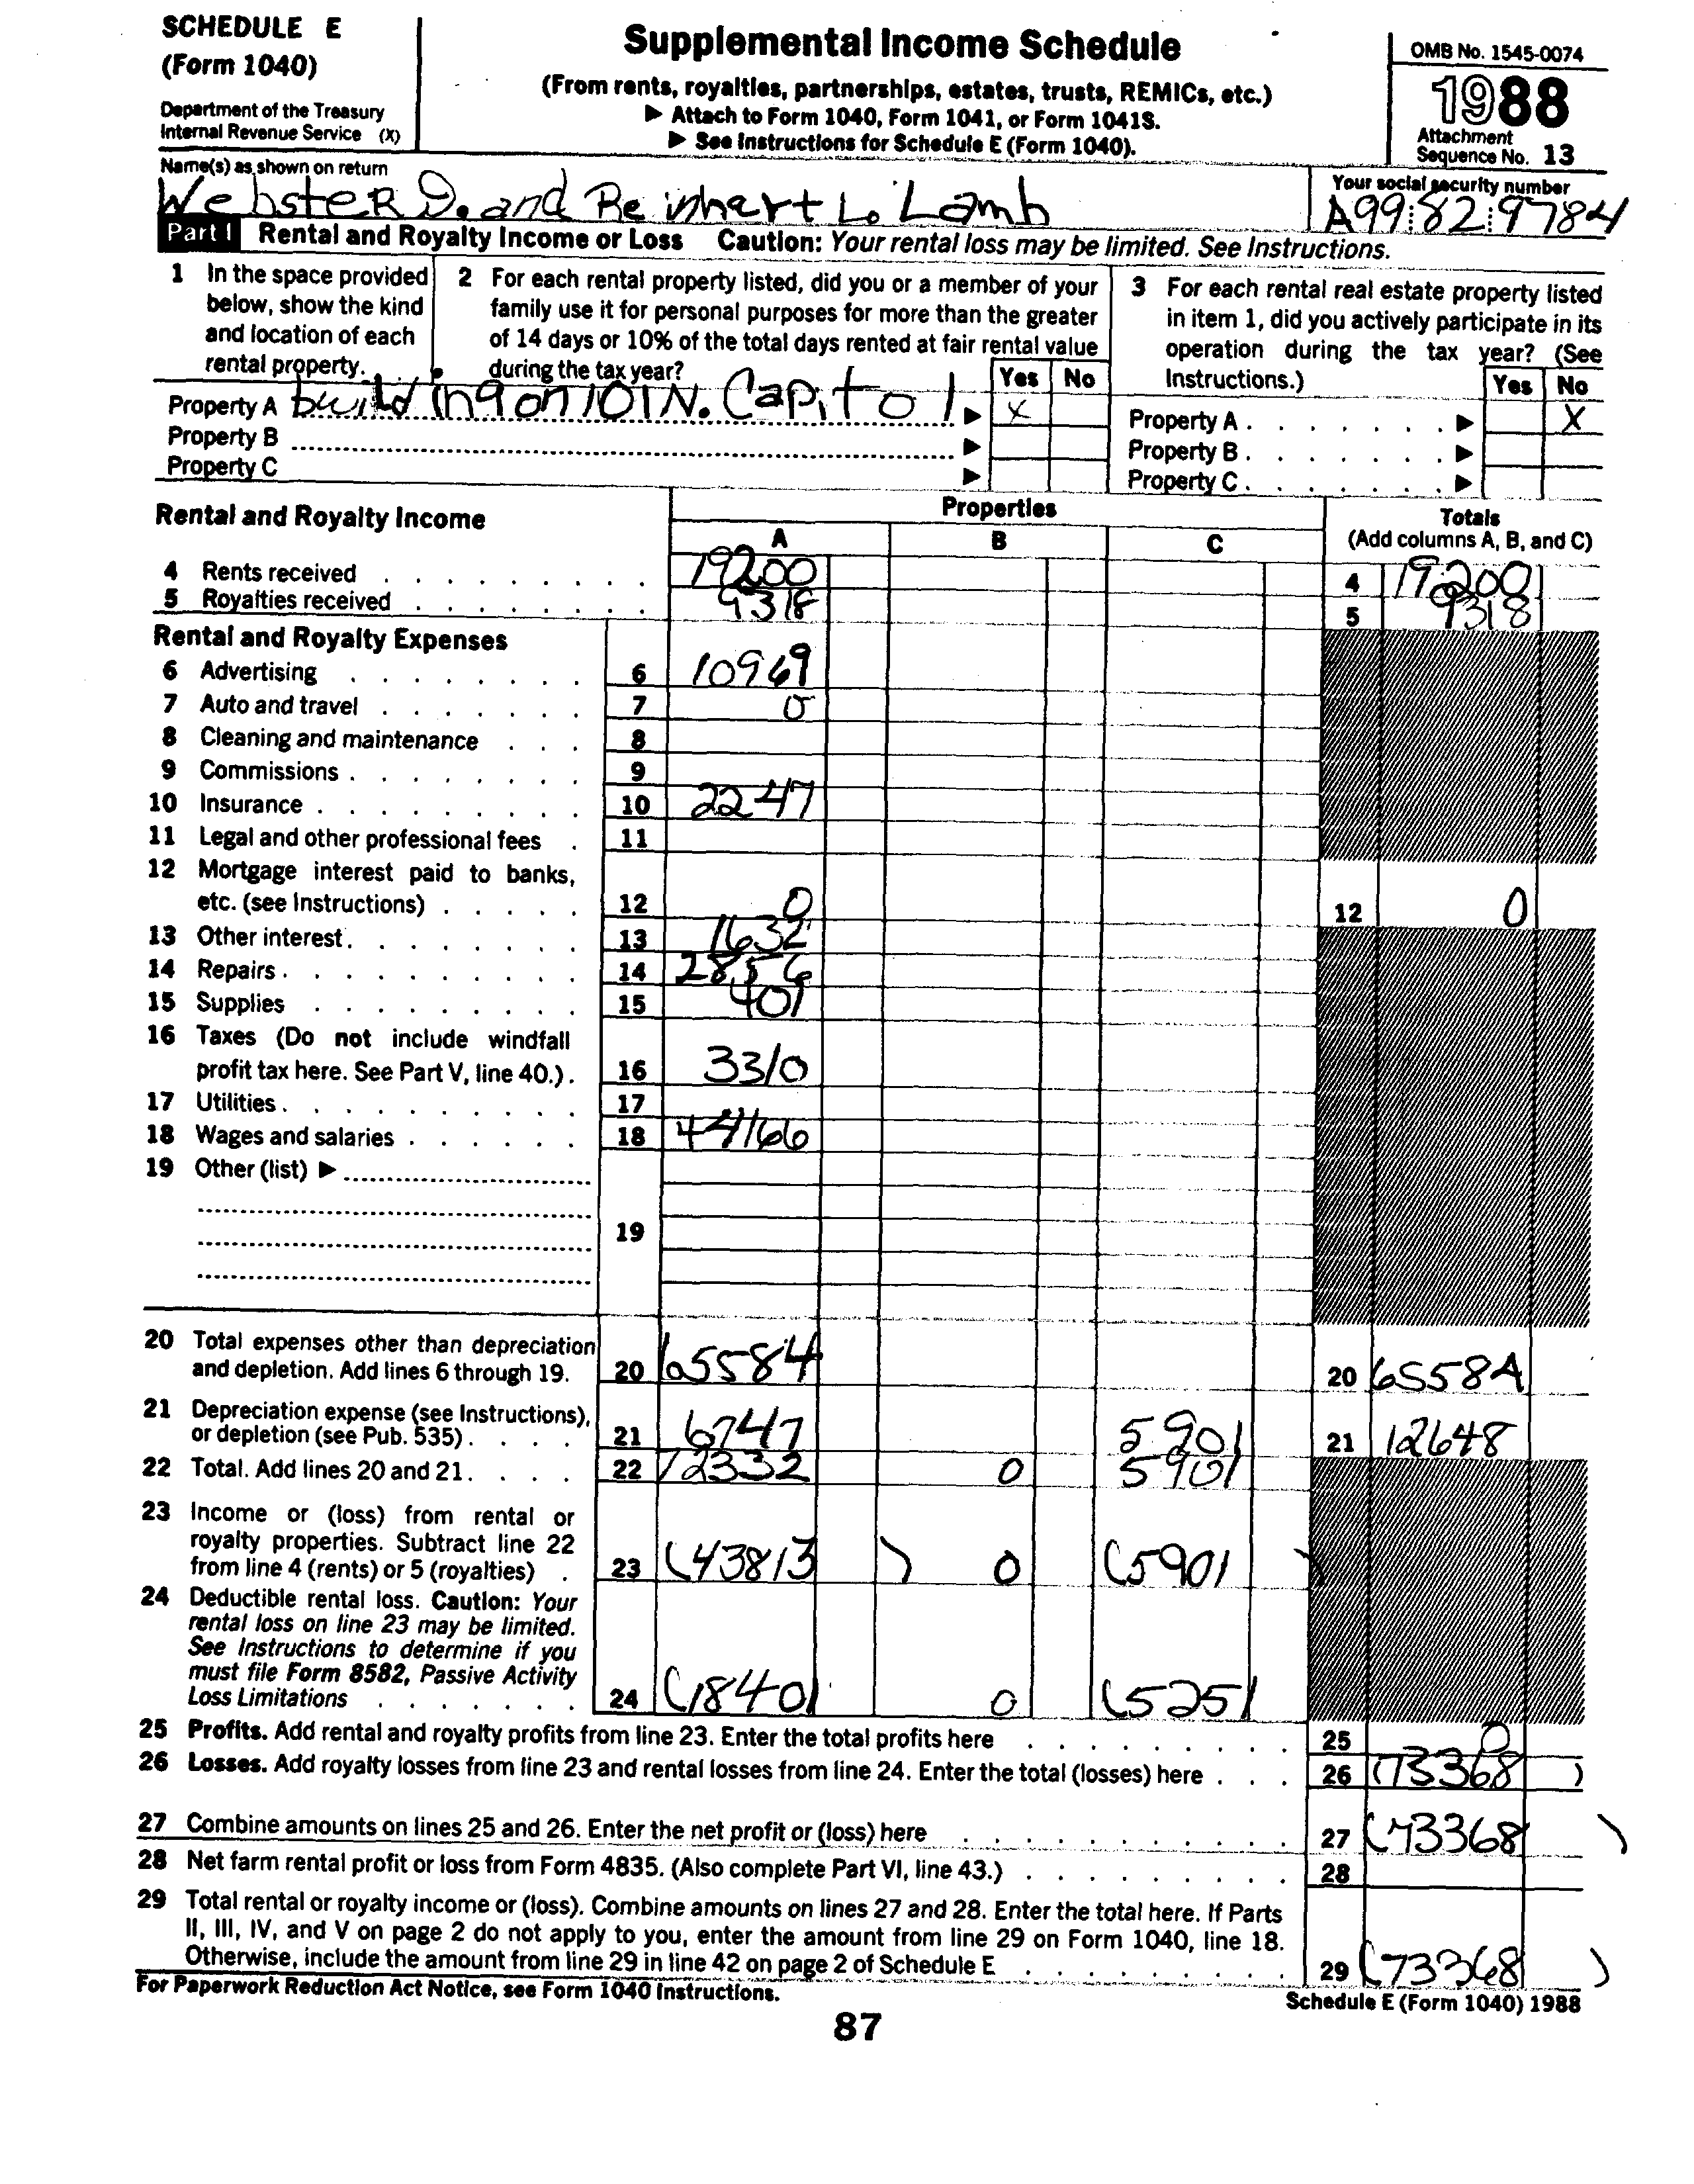 SCHEDULE E
(Form 1040)
Department of the Treasury
Internal Revenue Service (X)
Supplemental Income Schedule
(From rents, royalties, partnerships, estates, trusts, REMICs, etc.)
▶ Attach to Form 1040, Form 1041, or Form 1041S.
▶ See Instructions for Schedule E (Form 1040).
OMB No. 1545-0074
1988
Attachment
Sequence No. 13
Name(s) as shown on return
Webster D. and Reinhart L. Lamb
Your social security number
A99:82:9784
Part I Rental and Royalty Income or Loss Caution: Your rental loss may be limited. See Instructions.
1 In the space provided
below, show the kind
and location of each
rental property.
2 For each rental property listed, did you or a member of your
family use it for personal purposes for more than the greater
of 14 days or 10% of the total days rented at fair rental value
during the tax year?
Yes No
3 For each rental real estate property listed
in item 1, did you actively participate in its
operation during the tax year? (See
Instructions.)
Yes No
Property A building on 101 N. Capitol ▶ X
Property B ▶
Property C ▶
Property A ▶ X
Property B ▶
Property C ▶
Rental and Royalty Income
Properties
A B C
Totals
(Add columns A, B, and C)
4 Rents received 19200 4 19200
5 Royalties received 9318 5 9318
Rental and Royalty Expenses
6 Advertising 6 10969
7 Auto and travel 7 0
8 Cleaning and maintenance 8
9 Commissions 9
10 Insurance 10 2247
11 Legal and other professional fees 11
12 Mortgage interest paid to banks,
etc. (see Instructions) 12 0 12 0
13 Other interest 13 1632
14 Repairs 14 2856
15 Supplies 15 401
16 Taxes (Do not include windfall
profit tax here. See Part V, line 40.) 16 3310
17 Utilities 17
18 Wages and salaries 18 44166
19 Other (list) ▶
19
20 Total expenses other than depreciation
and depletion. Add lines 6 through 19. 20 65584 20 65584
21 Depreciation expense (see Instructions),
or depletion (see Pub. 535) 21 6747 5901 21 12648
22 Total. Add lines 20 and 21 22 72332 0 5901
23 Income or (loss) from rental or
royalty properties. Subtract line 22
from line 4 (rents) or 5 (royalties) 23 (43813) 0 (5901)
24 Deductible rental loss. Caution: Your
rental loss on line 23 may be limited.
See Instructions to determine if you
must file Form 8582, Passive Activity
Loss Limitations 24 (18401 0 (5251
25 Profits. Add rental and royalty profits from line 23. Enter the total profits here 25 0
26 Losses. Add royalty losses from line 23 and rental losses from line 24. Enter the total (losses) here 26 (73368)
27 Combine amounts on lines 25 and 26. Enter the net profit or (loss) here 27 (73368)
28 Net farm rental profit or loss from Form 4835. (Also complete Part VI, line 43.) 28
29 Total rental or royalty income or (loss). Combine amounts on lines 27 and 28. Enter the total here. If Parts
II, III, IV, and V on page 2 do not apply to you, enter the amount from line 29 on Form 1040, line 18.
Otherwise, include the amount from line 29 in line 42 on page 2 of Schedule E 29 (73368)
For Paperwork Reduction Act Notice, see Form 1040 Instructions.
Schedule E (Form 1040) 1988
87